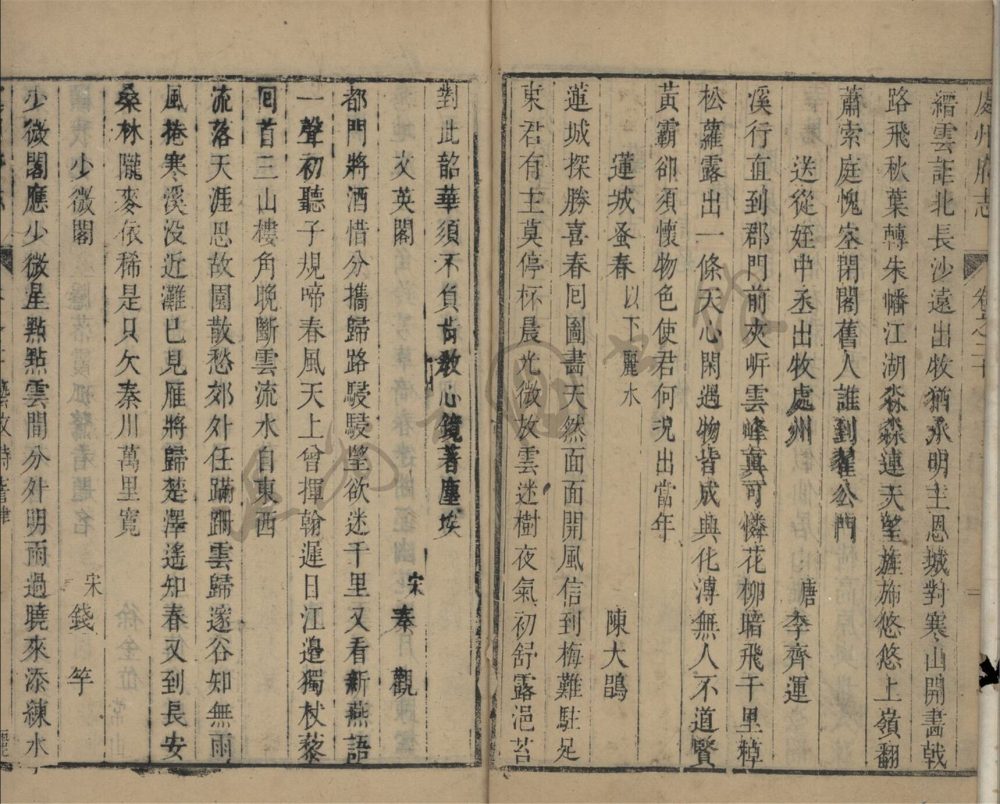 處州府志 卷之二十
縉雲詎北長沙遠出牧猶承明主恩城對寒山開畫戟
路飛秋葉轉朱幡江湖淼淼連天望旌旆悠悠上嶺翻
蕭索庭槐空閉閣舊人誰到翟公門
送從姪中丞出牧處州 唐 李齊運
溪行直到郡門前夾岍雲峰真可憐花柳暗飛千里棹
松蘿露出一條天心閑遇物皆成典化溥無人不道賢
黃霸卻須懷物色使君何況出當年
蓮城蚤春 以下麗水 陳大鵾
蓮城探勝喜春回圖畫天然面面開風信到梅難駐足
東君有主莫停杯晨光微放雲迷樹夜氣初舒露浥苔
對此韶華須不負肯教心鏡著塵埃
文英閣 宋 秦 觀
都門將酒惜分攜歸路駸駸墾欲迷千里又看新燕語
一聲初聽子規啼春風天上曾揮翰遲日江邊獨杖藜
回首三山樓角晚斷雲流水自東西
流落天涯思故園散愁郊外任蹣跚雲歸邃谷知無雨
風捲寒溪没近灘已見雁將歸楚澤遙知春又到長安
桑林隴麥依稀是只欠秦川萬里寬
少微閣 宋 錢 竽
少微閣應少微星點點雲間分外明雨過曉來添練水